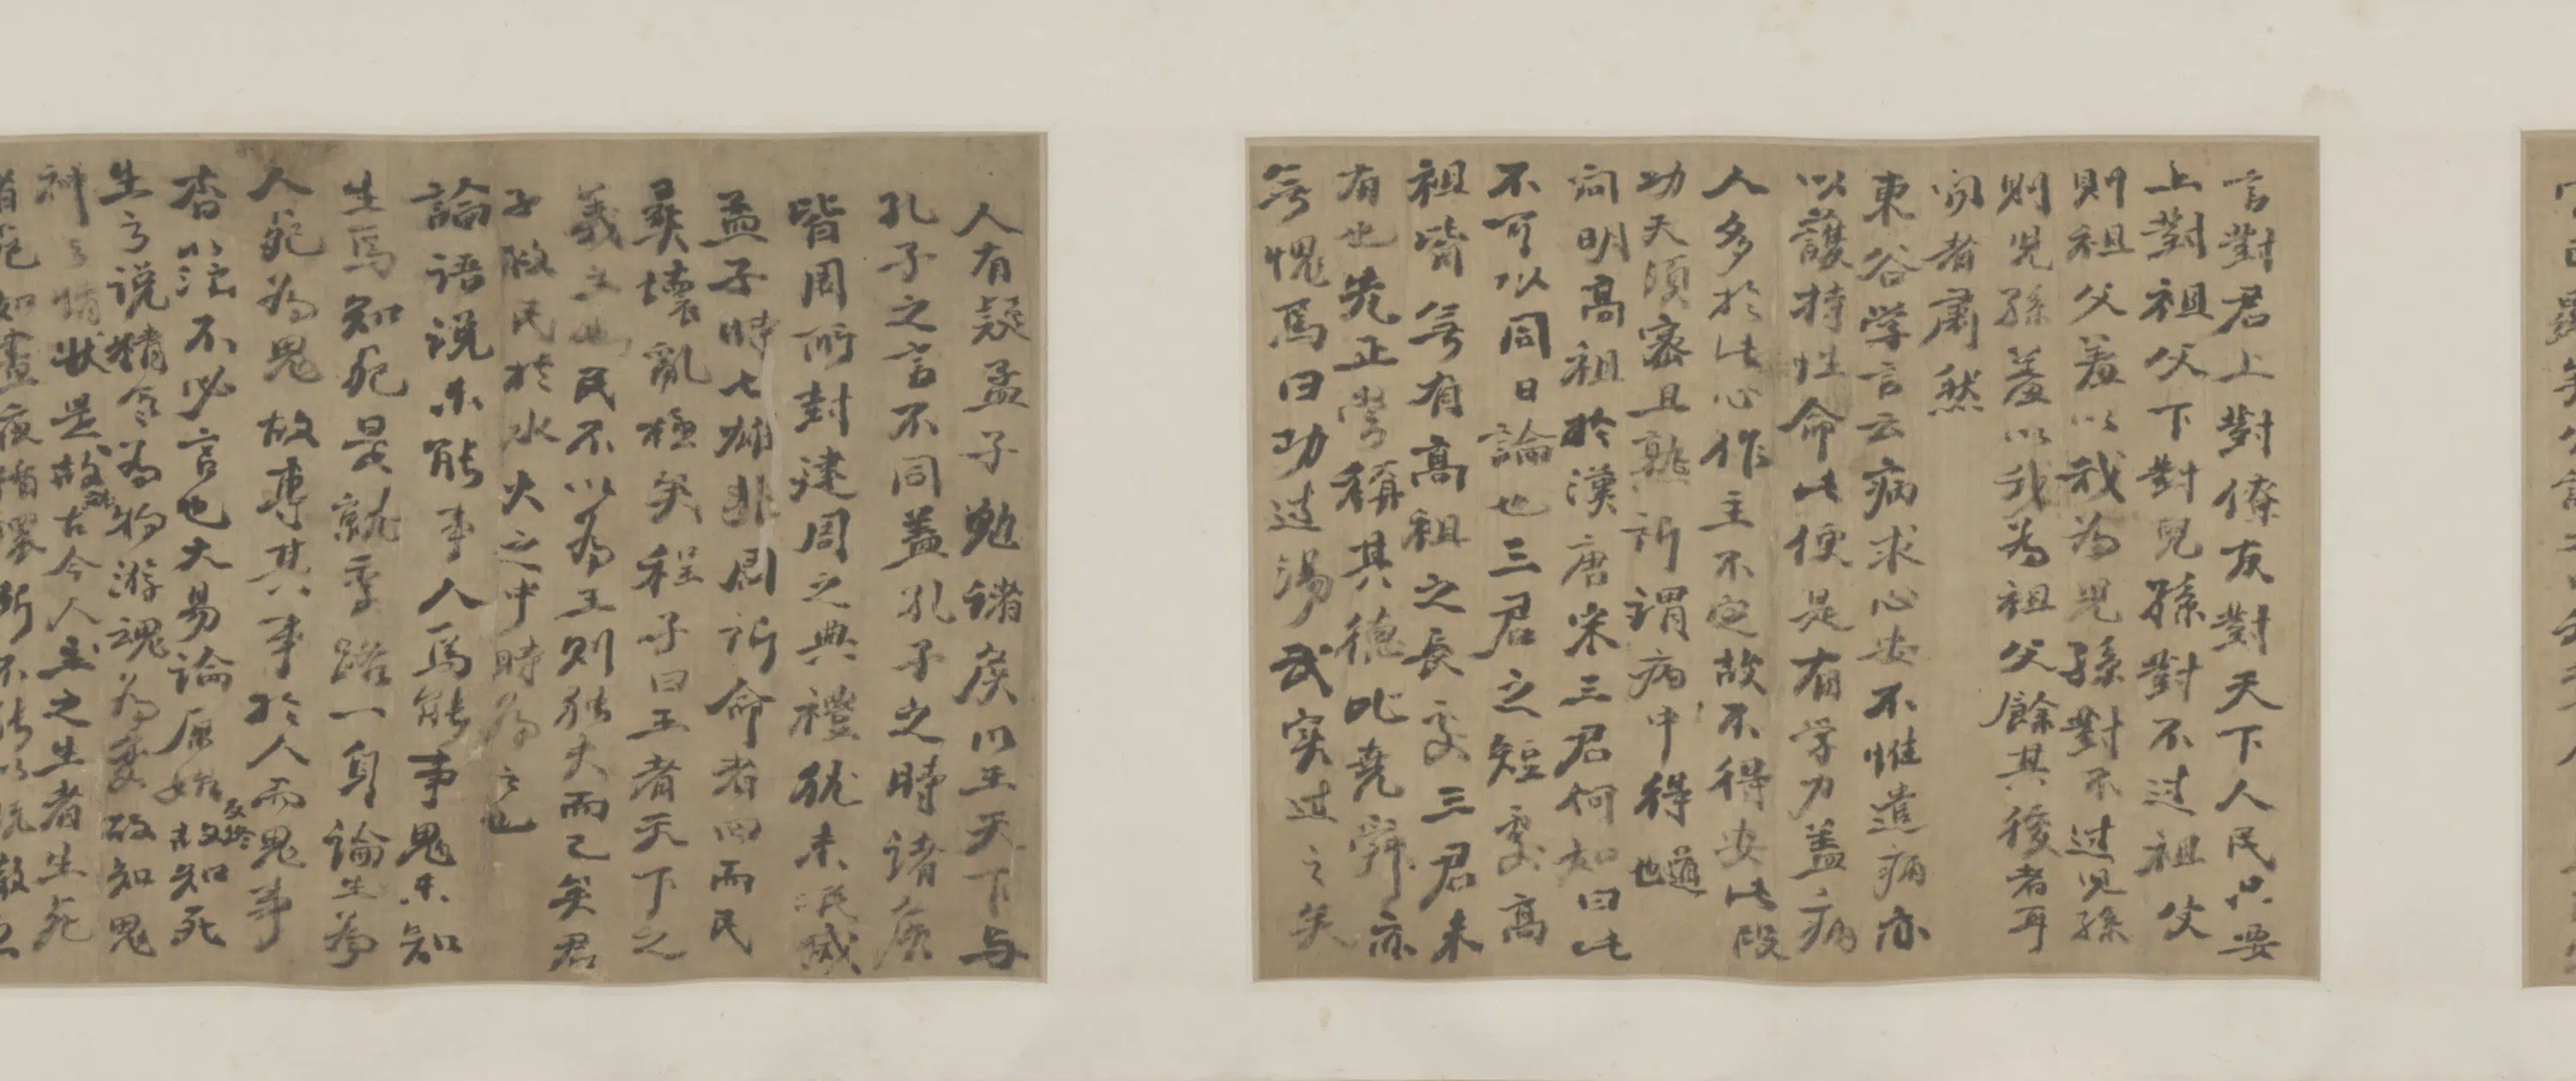 言對君上對僚友對天下人民只要
上對祖父下對兒孫對不过祖父
則祖父羞以我为兒孫對不过兒孫
則兒孫羞以我为祖父餘其後者耳
肅然
東谷学言云病求心安不惟遣病亦
以護持性命此便是有学力盖病
人多於此心作主不定故不得安此段
功夫須密且熟所谓病中得道也
问明高祖於漢唐宋三君何如曰此
不可以同日論也三君之短處高
祖皆無有高祖之長處三君未
有也先正嘗稱其德比堯舜亦
無愧焉曰功过湯武实过之矣
人有疑孟子勉诸侯以王天下与
孔子之言不同盖孔子之時诸侯
皆周所封建周之典禮犹未泯滅
孟子時七雄非周所命者四而民
彝壞亂極矣程子曰王者天下之
義主也民不以为王則独夫而已矣君
子救民於水火之中時为之也
論语说未能事人焉能事鬼未知
生焉知死是就季路一身論生为
人死为鬼故專其事於人而鬼事
杳以茫不必言也大易論原始反終故知死
生之说精气为物游魂为变故知鬼
神之情狀是故就古今人主之生者生死
者死如晝夜循環所不